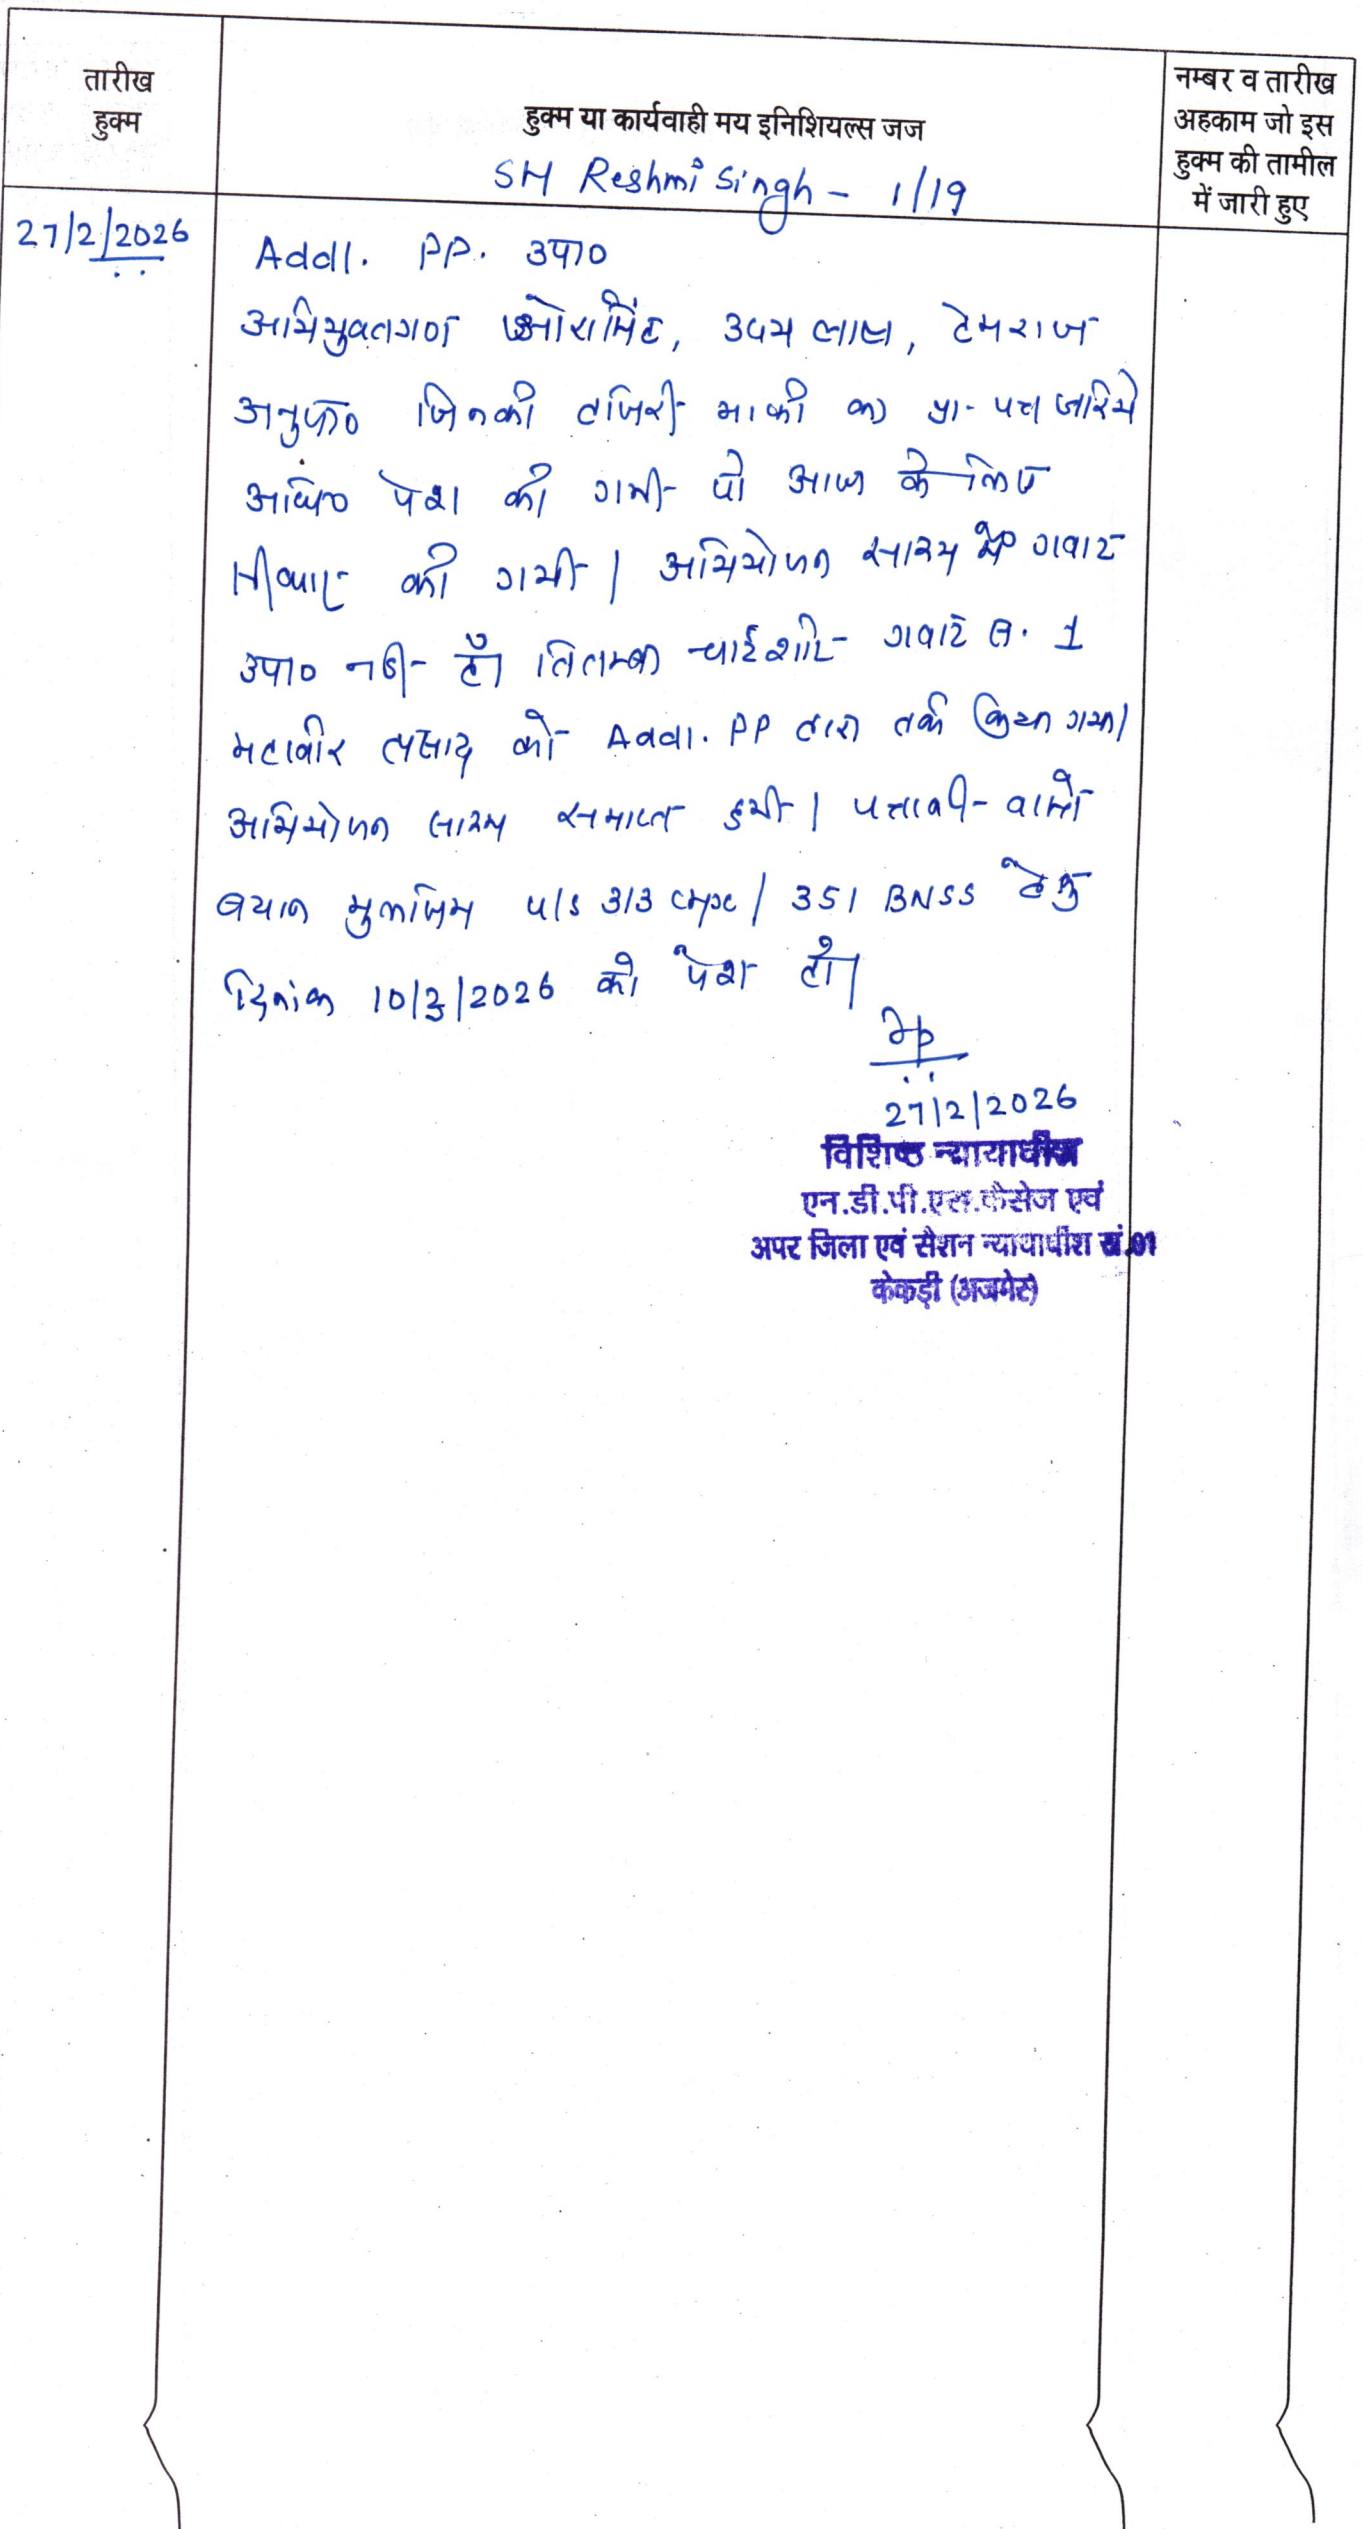 तारीख
हुक्म
हुक्म या कार्यवाही मय इनिशियल्स जज
नम्बर व तारीख
अहकाम जो इस
हुक्म की तामील
में जारी हुए
SH Reshmi Singh - 1/19
27/2/2026
Addl. PP. उपा०
अभियुक्तगण उदय लाल, हेमराज
अनुप० जिनकी हाजिरी माफी का प्रा- पत्र जरिये
अधि० पेश की गयी जो आज के लिए
स्वीकार की गयी। अभियोजन साक्ष्य में गवाह
उपा० नही है। चार्टशीट गवाह स. 1
महावीर प्रसाद को Addl. PP द्वारा तर्क किया गया।
अभियोजन साक्ष्य समाप्त हुयी। पत्रावली वास्ते
बयान मुलजिम u/s 313 crpc / 351 BNSS हेतु
दिनांक 10/3/2026 को पेश हो।
27/2/2026
विशिष्ठ न्यायाधीश
एन.डी.पी.एस.केसेज एवं
अपर जिला एवं सैशन न्यायाधीश सं.01
केकड़ी (अजमेर)